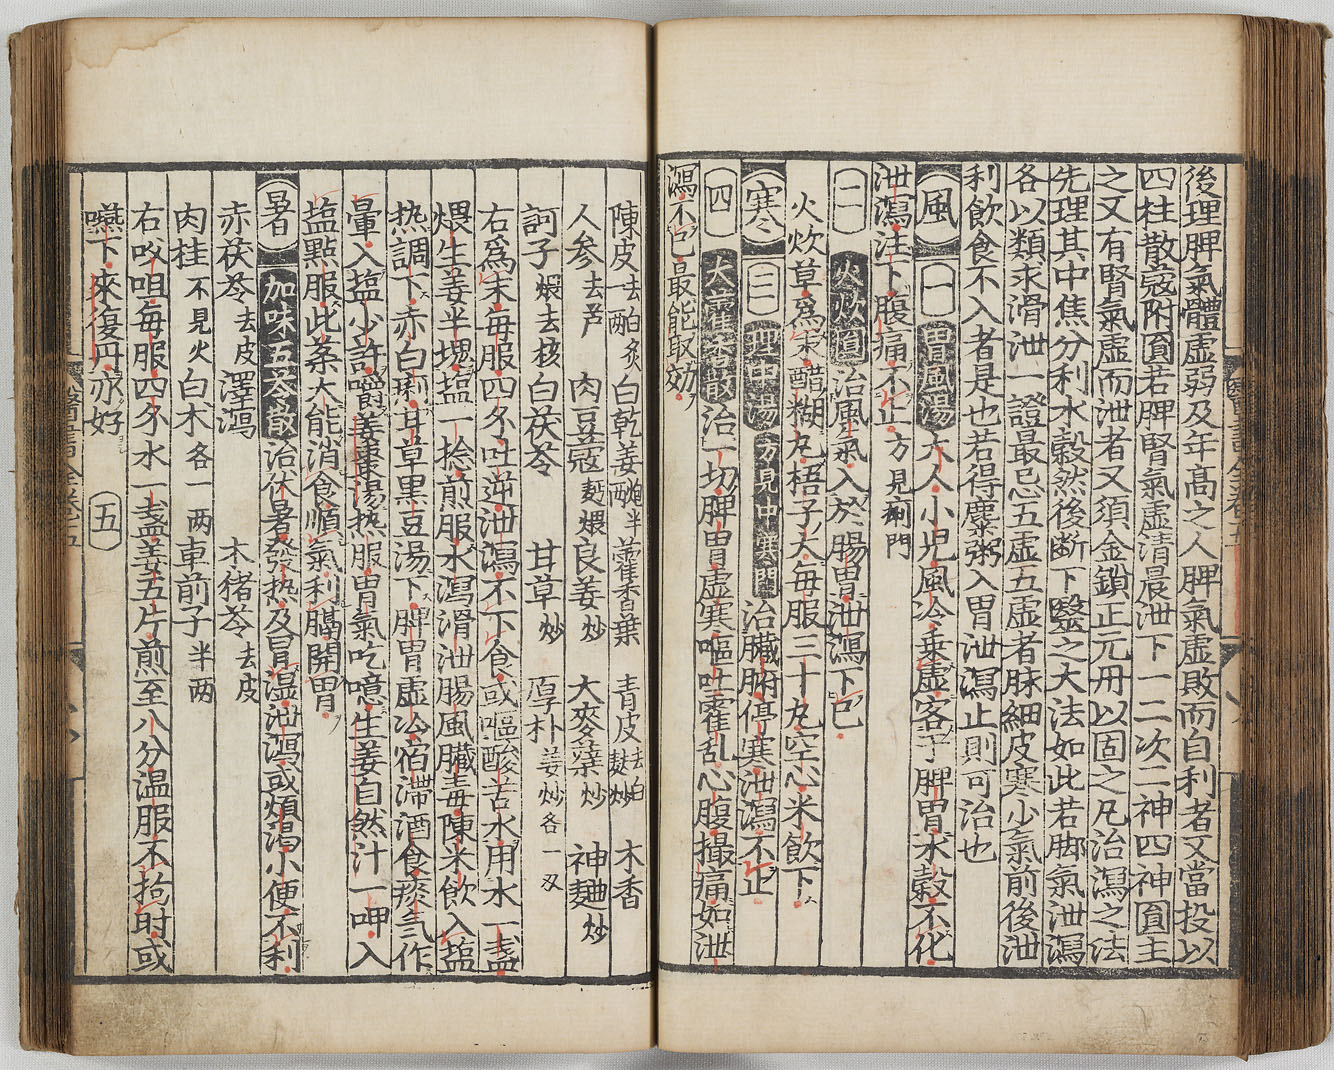 後理脾氣體虛弱及年髙之人脾氣虛敗而自利者又當投以
四柱散寇附圓若脾腎氣虛清晨泄下一二次二神四神圓主
之又有腎氣虛而泄者又須金鎖正元冊以固之凡治瀉之法
先理其中焦分利水穀然後断下毉之大法如此若脚氣泄瀉
各以類求滑泄一證最忌五虛五虛者脉細皮寒少氣前後泄
利飲食不入者是也若得糜粥入胃泄瀉止則可治也
風 一 胃風湯 大人小児風冷乗虛客于脾胃水穀不化
泄瀉注下腹痛不止方見痢門
二 火炊圓 治風氣入於腸胃泄瀉下已
火炊草爲末醋糊丸梧子大每服三十丸空心米飲下
寒 三 理中湯 方見中寒門 治臟腑停寒泄瀉不止
四 大藿香散 治一切脾胃虛寒嘔吐霍乱心腹撮痛如泄
瀉不已最能取効
陳皮去白一兩 白乾姜炮半兩 藿香葉 青皮去白麩炒 木香
人参去芦 肉豆蔻麪煨 良姜炒 大麥蘖炒 神麯炒
訶子煨去核 白茯苓 甘草炒 厚朴姜炒各一刄
右爲末每服四夕吐逆泄瀉不下食或嘔酸苦水用水一盞
煨生姜半塊塩一捻煎服水瀉滑泄腸風臟毒陳米飲入塩
热調下赤白痢甘草黒豆湯下脾胃虛冷宿滯酒食痰氣作
暈入塩少許嚼姜棗湯热服胃氣吃噫生姜自然汁一呷入
塩點服此薬大能消食順氣利膈開胃
暑 加味五苓散 治伏暑發热及冒湿泄瀉或煩渴小便不利
赤茯苓去皮 澤瀉 木猪苓去皮
肉桂不見火 白木各一两 車前子半两
右㕮咀每服四夕水一盞姜五片煎至八分温服不拘时或
嚥下來復丹亦好 五